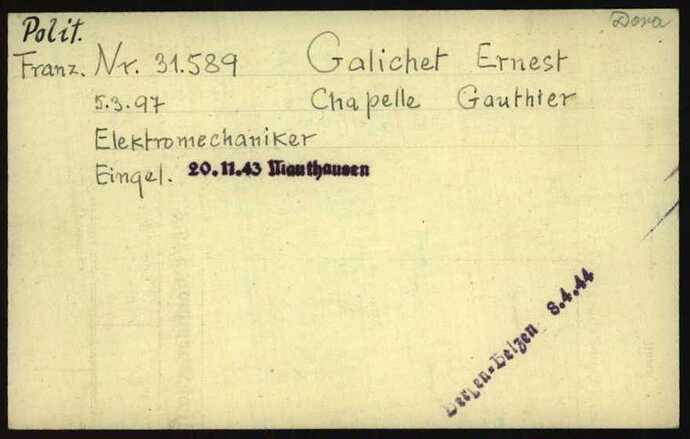 Polit.
Dora
Franz. Nr. 31.589 Galichet Ernest
5.3.97 Chapelle Gauthier
Elektromechaniker
Eingel. 20.11.43 Mauthausen
Bergen-Belzen 8.4.44